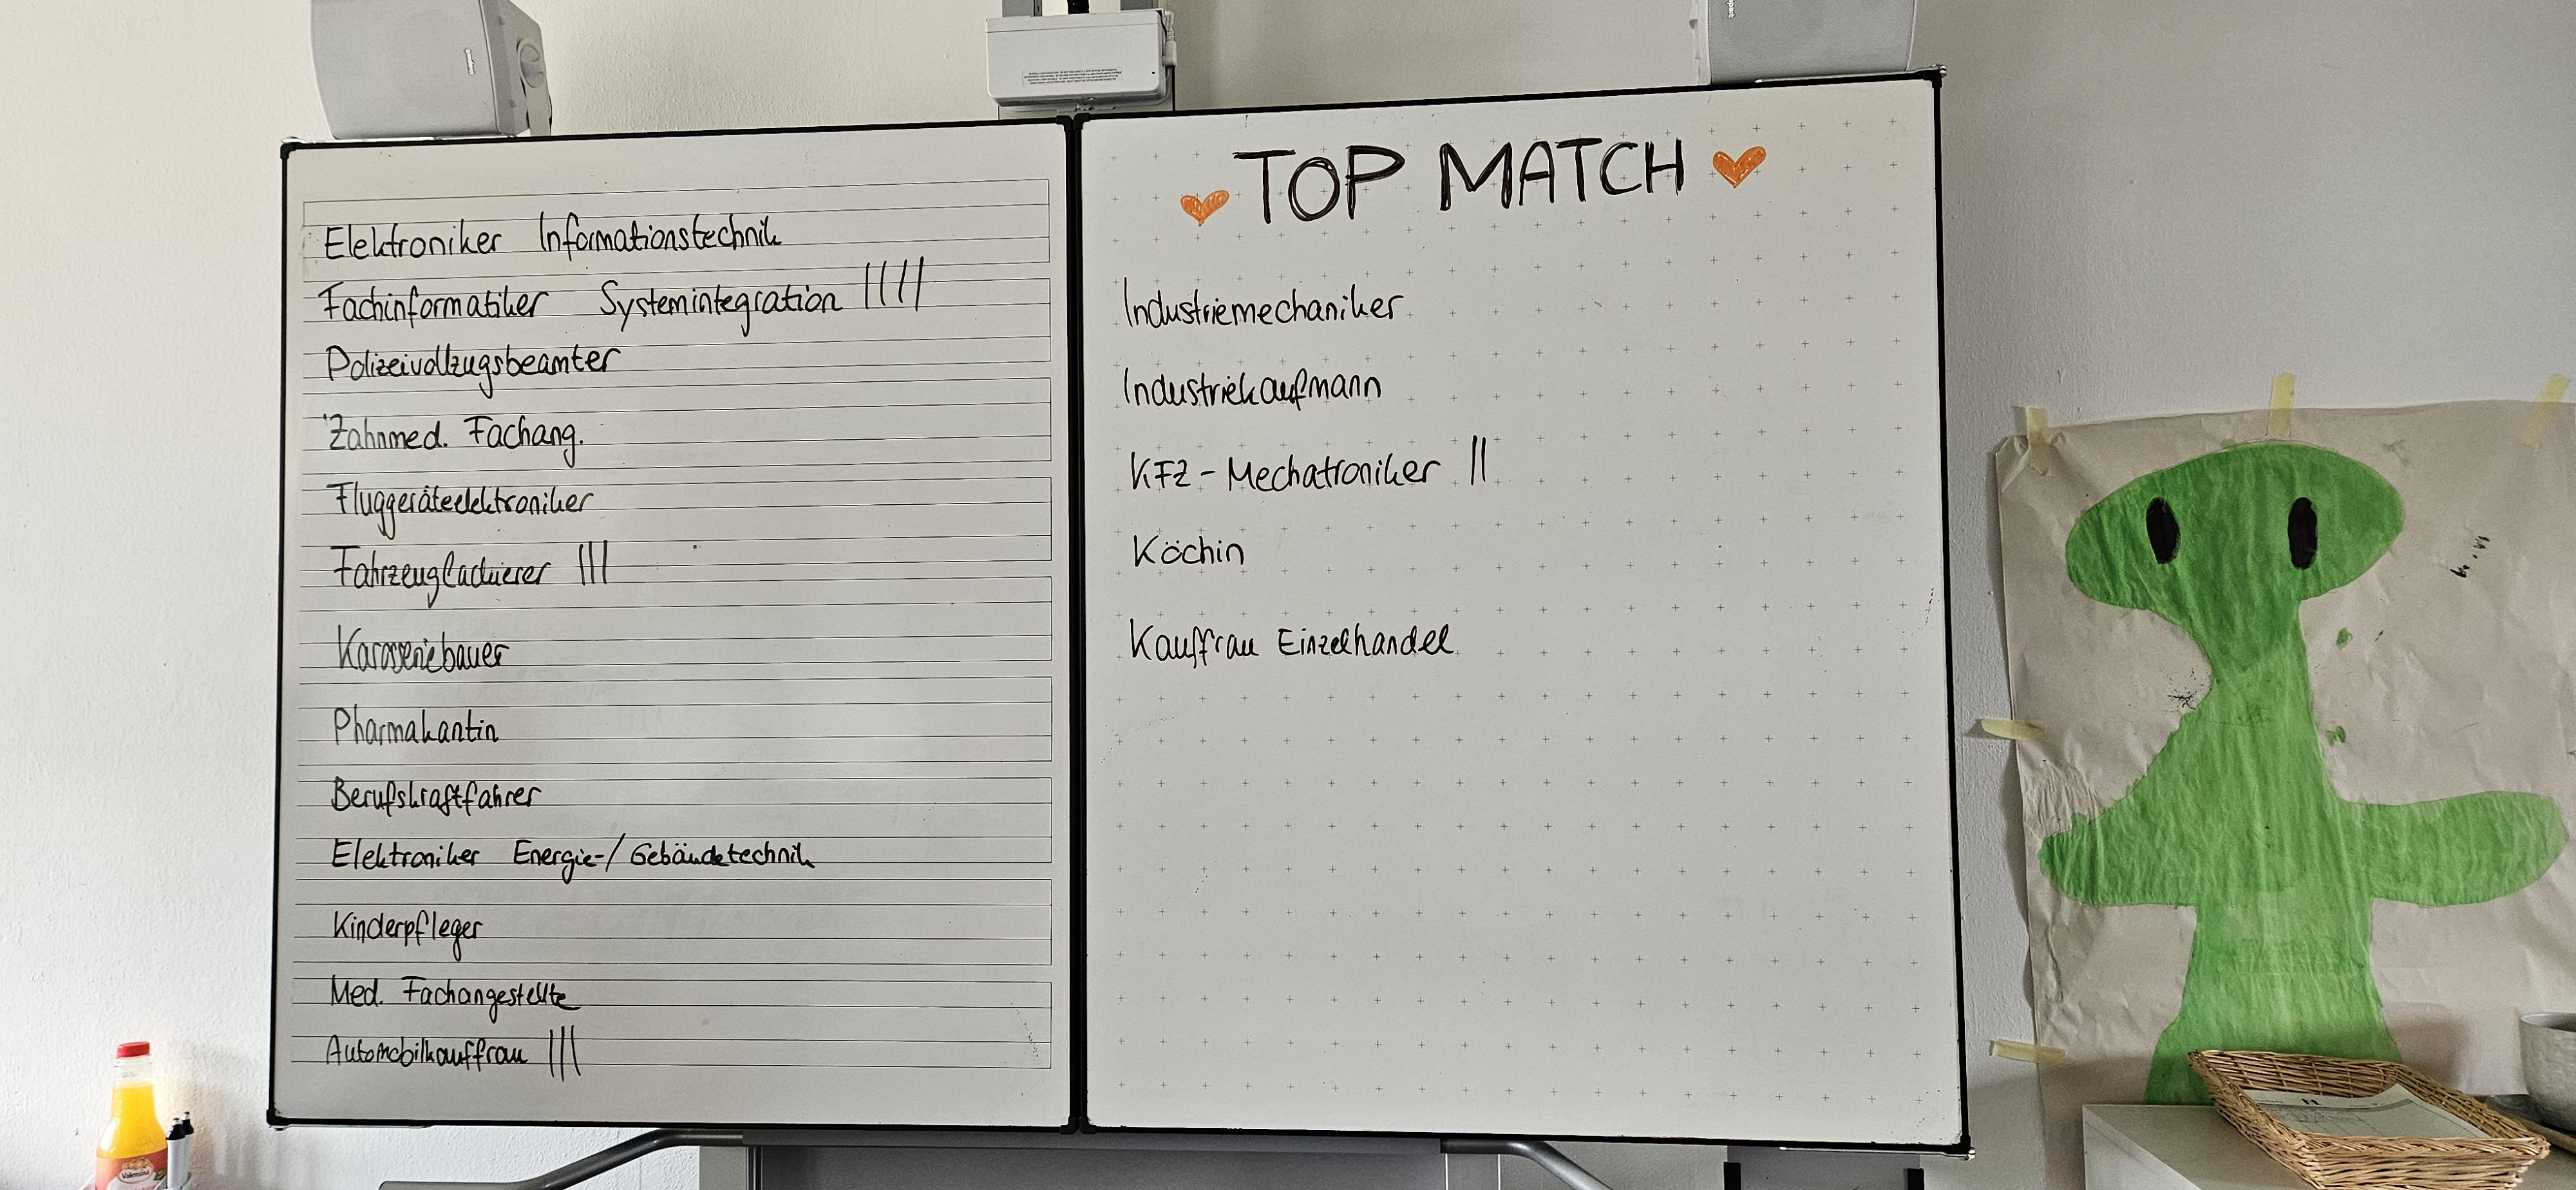 Elektroniker Informationstechnik
Fachinformatiker Systemintegration ||||
Polizeivollzugsbeamter
Zahnmed. Fachang.
Fluggeräteelektroniker
Fahrzeuglackierer |||
Karosseriebauer
Pharmakantin
Berufskraftfahrer
Elektroniker Energie-/Gebäudetechnik
Kinderpfleger
Med. Fachangestellte
Automobilkauffrau |||
TOP MATCH
Industriemechaniker
Industriekaufmann
KFZ-Mechatroniker ||
Köchin
Kauffrau Einzelhandel